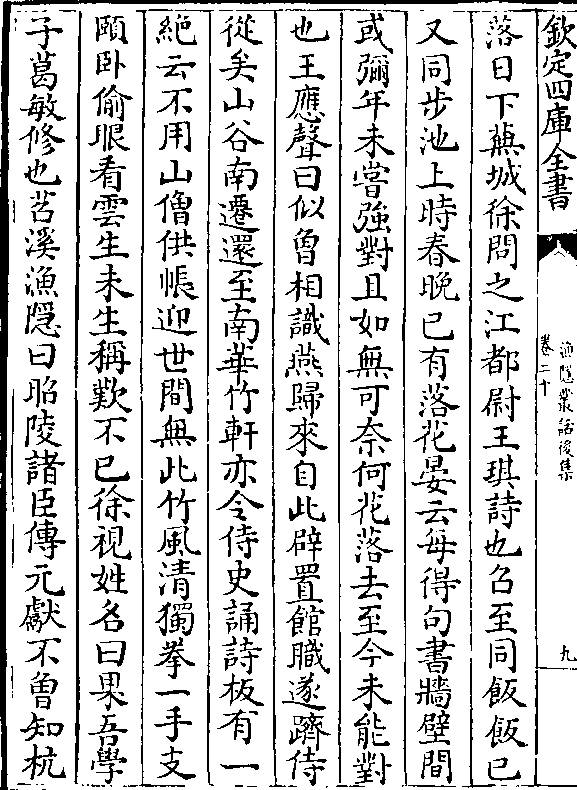 欽定四庫全書
漁隱叢話後集
卷二十
九
落日下蕪城徐問之江都尉王琪詩也召至同飯飯已
又同步池上時春晚已有落花晏云每得句書牆壁間
或彌年未嘗強對且如無可奈何花落去至今未能對
也王應聲曰似曾相識燕歸來自此辟置館職遂躋侍
從矣山谷南遷還至南華竹軒亦令侍史誦詩板有一
絶云不用山僧供帳迎世間無此竹風清獨拳一手支
頤卧偷眼看雲生未生稱歎不已徐視姓名曰果吾學
子葛敏修也苕溪漁隠曰昭陵諸臣傳元獻不曾知杭